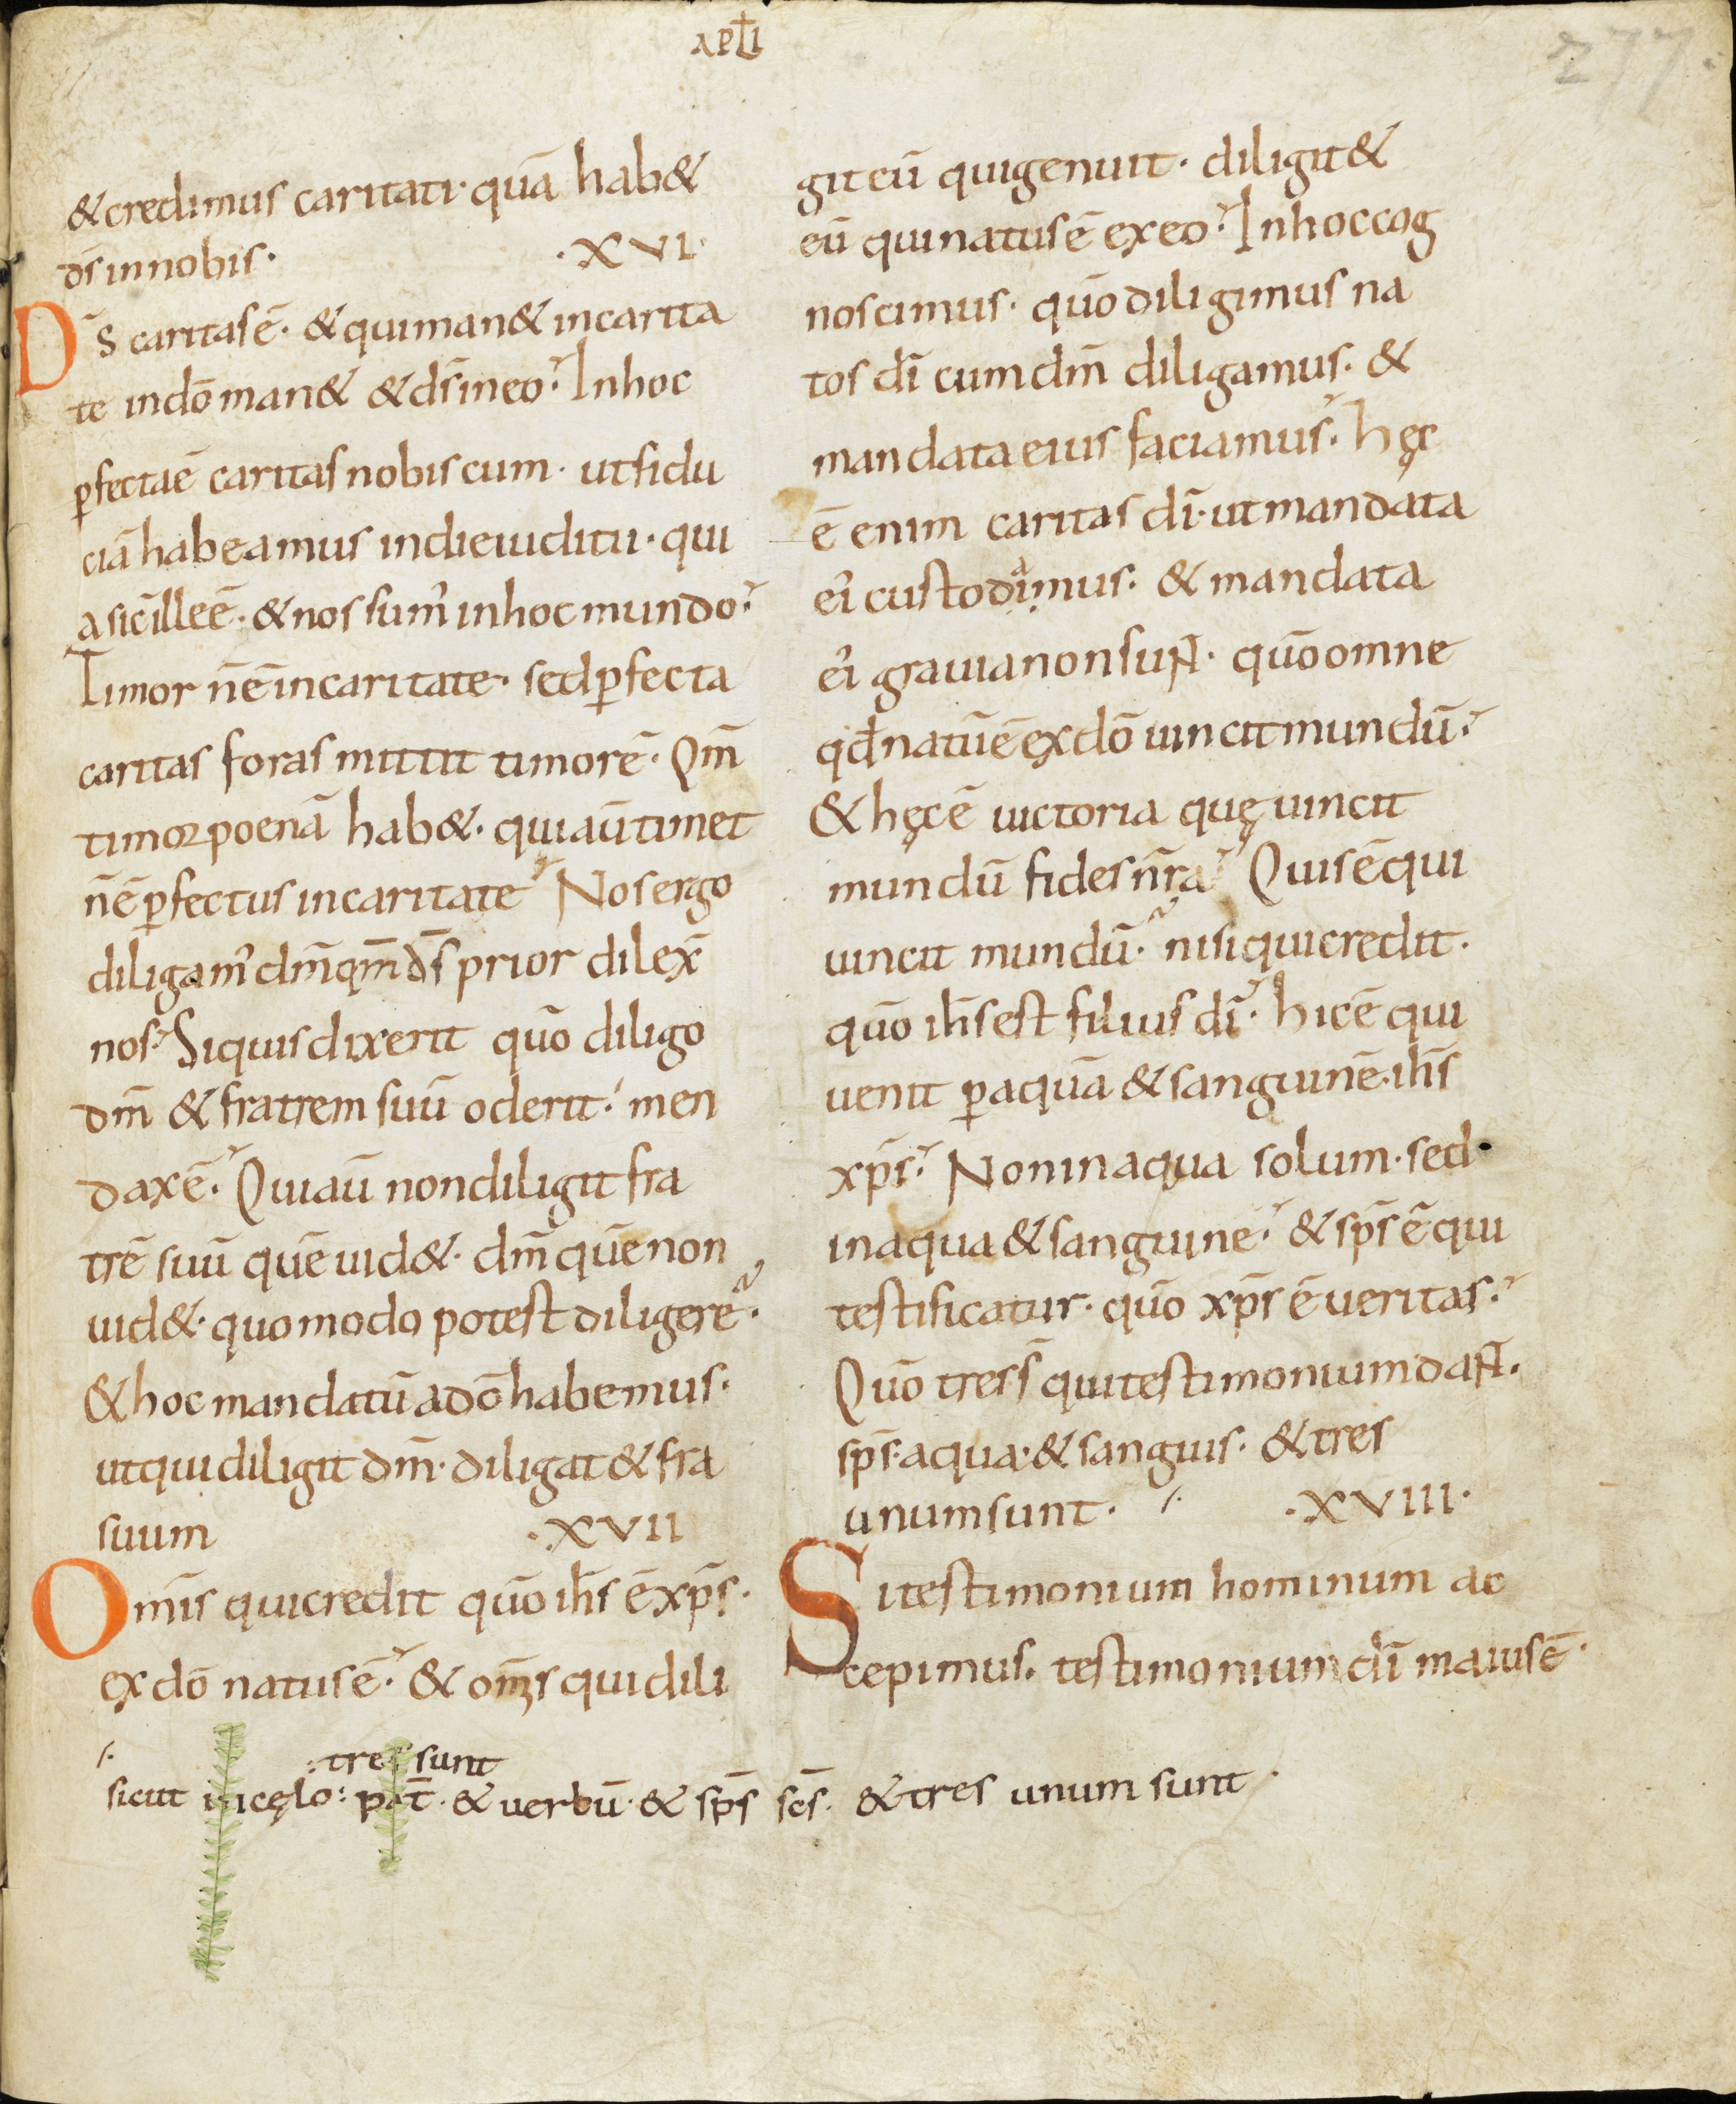 APLI
277.
& credimus caritati· quā hab&
dſ innobis· ·XVI·
D̄s caritas ē· & qui man& in carita
te indō man& & dſ ineo· Inhoc
pfecta ē caritas nobiscum· ut fidu
ciā habeamus indie iudicii· qui
a sic ille ē· & nos sum' inhoc mundo·
Timor n̄ ē incaritate· sed pfecta
caritas foras mittit timorē· Qm̄
timor poenā hab&· qui aū timet
n̄ ē pfectus incaritate Nos ergo
diligam' dm̄ qm̄ dſ prior dilex̄
nos· Siquis dixerit qūo diligo
dm̄ & fratrem suū oderit· men
dax ē· Qui aū non diligit fra
trē suū quē uid&· dm̄ quē non
uid&· quomodo potest diligere·
& hoc mandatū adō habemus·
ut qui diligit dm̄· diligat & fra
suum ·XVII
Om̄is qui credit qūo ih̄s ē xp̄s·
ex dō natus ē· & om̄s qui dili
git eū qui genuit· diligit &
eū qui natus ē ex eo· Inhoc cog
noscimus· qūo diligimus na
tos dī cum dm̄ diligamus· &
mandata eius faciamus· hęc
ē enim caritas dī· ut mandata
ei' custodiamus· & mandata
ei' grauia non sunt· qūo omne
qd natū ē ex dō uincit mundū·
& hęc ē uictoria quę uincit
mundū fides n̄ra Quis ē qui
uincit mundū· nisi qui credit·
qūo ih̄s est filius dī· hic ē qui
uenit p aquā & sanguinē· ih̄s
xp̄s· Non in aqua solum· sed·
in aqua & sanguine· & sp̄s ē qui
testificatur· qūo xp̄s ē ueritas·
Qūo tres s̄ qui testimonium dant·
sp̄s· aqua· & sanguis· & tres
unum sunt· /· ·XVIII·
Si testimonium hominum ac
cepimus· testimonium dī maius ē·
/· : tres sunt
sicut in cęlo: pat̄· & uerbū· & sp̄s sc̄s· & tres unum sunt·